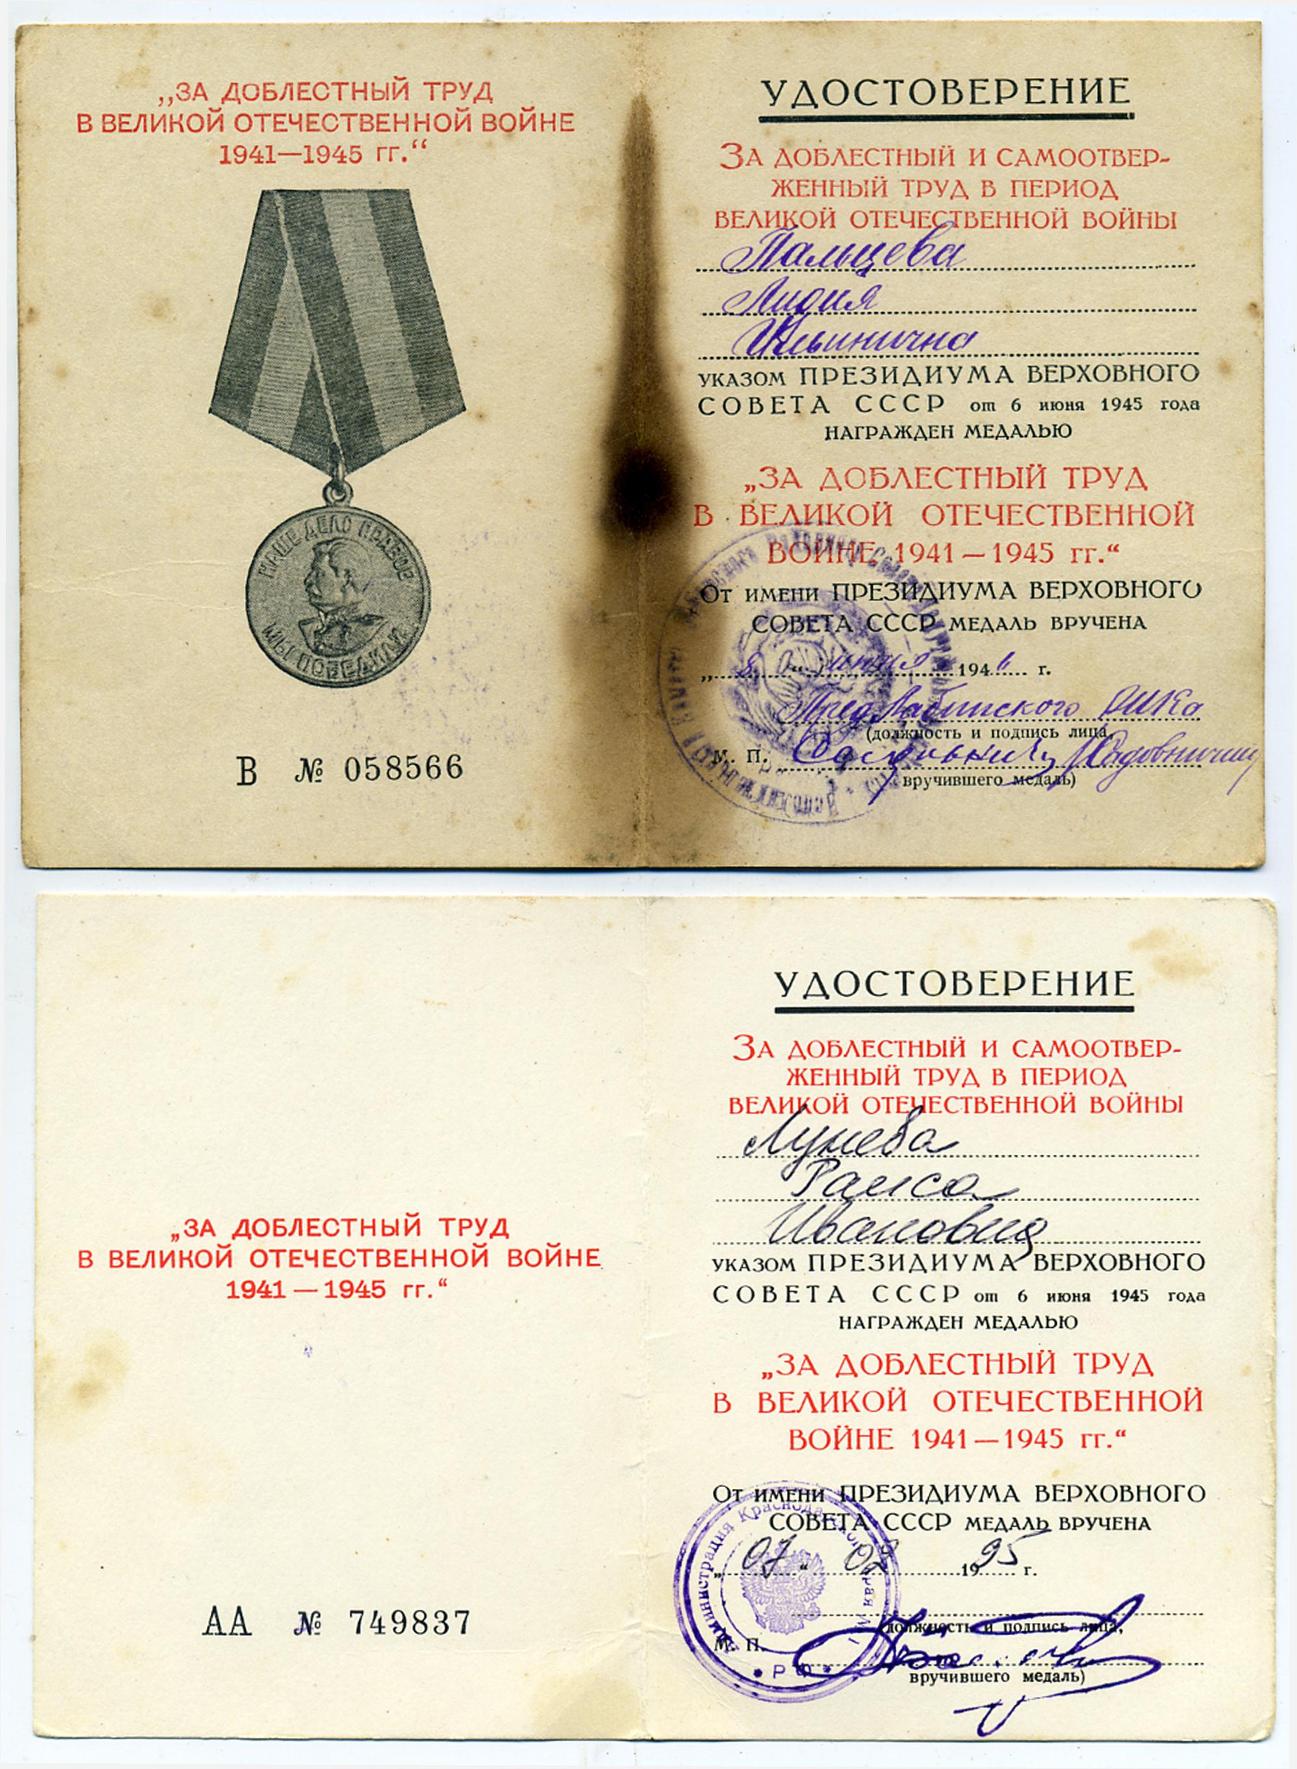 „ЗА ДОБЛЕСТНЫЙ ТРУД
В ВЕЛИКОЙ ОТЕЧЕСТВЕННОЙ ВОЙНЕ
1941—1945 гг.“
НАШЕ ДЕЛО ПРАВОЕ
МЫ ПОБЕДИЛИ
В № 058566
УДОСТОВЕРЕНИЕ
ЗА ДОБЛЕСТНЫЙ И САМООТВЕР-
ЖЕННЫЙ ТРУД В ПЕРИОД
ВЕЛИКОЙ ОТЕЧЕСТВЕННОЙ ВОЙНЫ
Пальцева
Лидия
Ильинична
УКАЗОМ ПРЕЗИДИУМА ВЕРХОВНОГО
СОВЕТА СССР от 6 июня 1945 года
НАГРАЖДЕН МЕДАЛЬЮ
„ЗА ДОБЛЕСТНЫЙ ТРУД
В ВЕЛИКОЙ ОТЕЧЕСТВЕННОЙ
ВОЙНЕ 1941—1945 гг.“
От имени ПРЕЗИДИУМА ВЕРХОВНОГО
СОВЕТА СССР МЕДАЛЬ ВРУЧЕНА
1946 г.
Пред Лабинского
(должность и подпись лица,
М. П.
вручившего медаль)
„ЗА ДОБЛЕСТНЫЙ ТРУД
В ВЕЛИКОЙ ОТЕЧЕСТВЕННОЙ ВОЙНЕ
1941—1945 гг.“
АА № 749837
УДОСТОВЕРЕНИЕ
ЗА ДОБЛЕСТНЫЙ И САМООТВЕР-
ЖЕННЫЙ ТРУД В ПЕРИОД
ВЕЛИКОЙ ОТЕЧЕСТВЕННОЙ ВОЙНЫ
Лунева
Раиса
Ивановна
УКАЗОМ ПРЕЗИДИУМА ВЕРХОВНОГО
СОВЕТА СССР от 6 июня 1945 года
НАГРАЖДЕН МЕДАЛЬЮ
„ЗА ДОБЛЕСТНЫЙ ТРУД
В ВЕЛИКОЙ ОТЕЧЕСТВЕННОЙ
ВОЙНЕ 1941—1945 гг.“
От имени ПРЕЗИДИУМА ВЕРХОВНОГО
СОВЕТА СССР МЕДАЛЬ ВРУЧЕНА
„07“ 02 1995 г.
Администрация Краснодарского края
РФ
М. П.
(должность и подпись лица,
вручившего медаль)